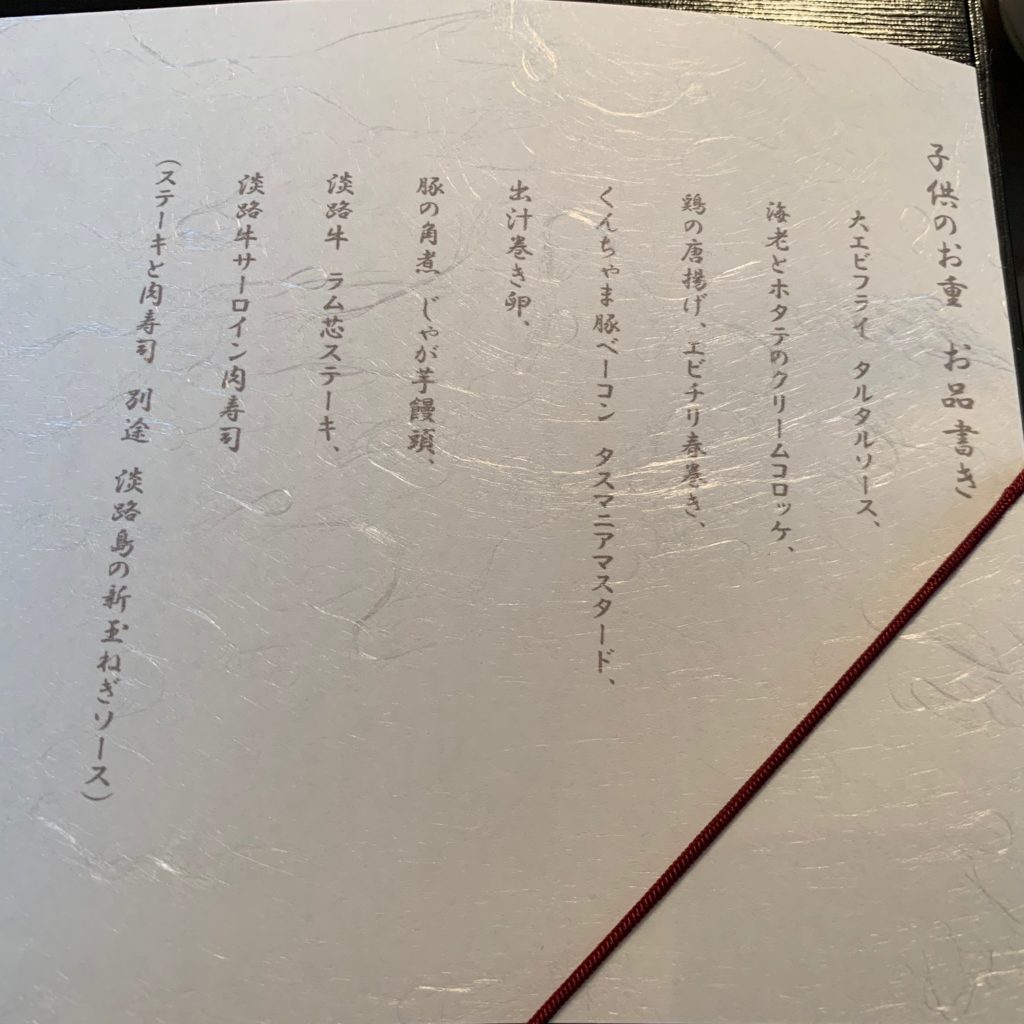 子供のお重　お品書き
大エビフライ　タルタルソース、
海老とホタテのクリームコロッケ、
鶏の唐揚げ、エビチリ春巻き、
くんちゃま豚ベーコン　タスマニアマスタード、
出汁巻き卵、
豚の角煮　じゃが芋饅頭、
淡路牛　ラム芯ステーキ、
淡路牛サーロイン肉寿司
（ステーキと肉寿司　別途　淡路島の新玉ねぎソース）